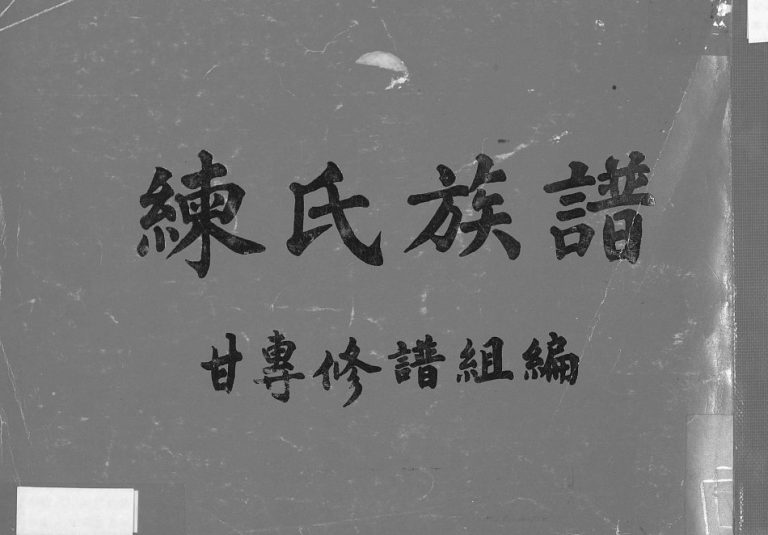 練氏族譜
甘專修譜組編